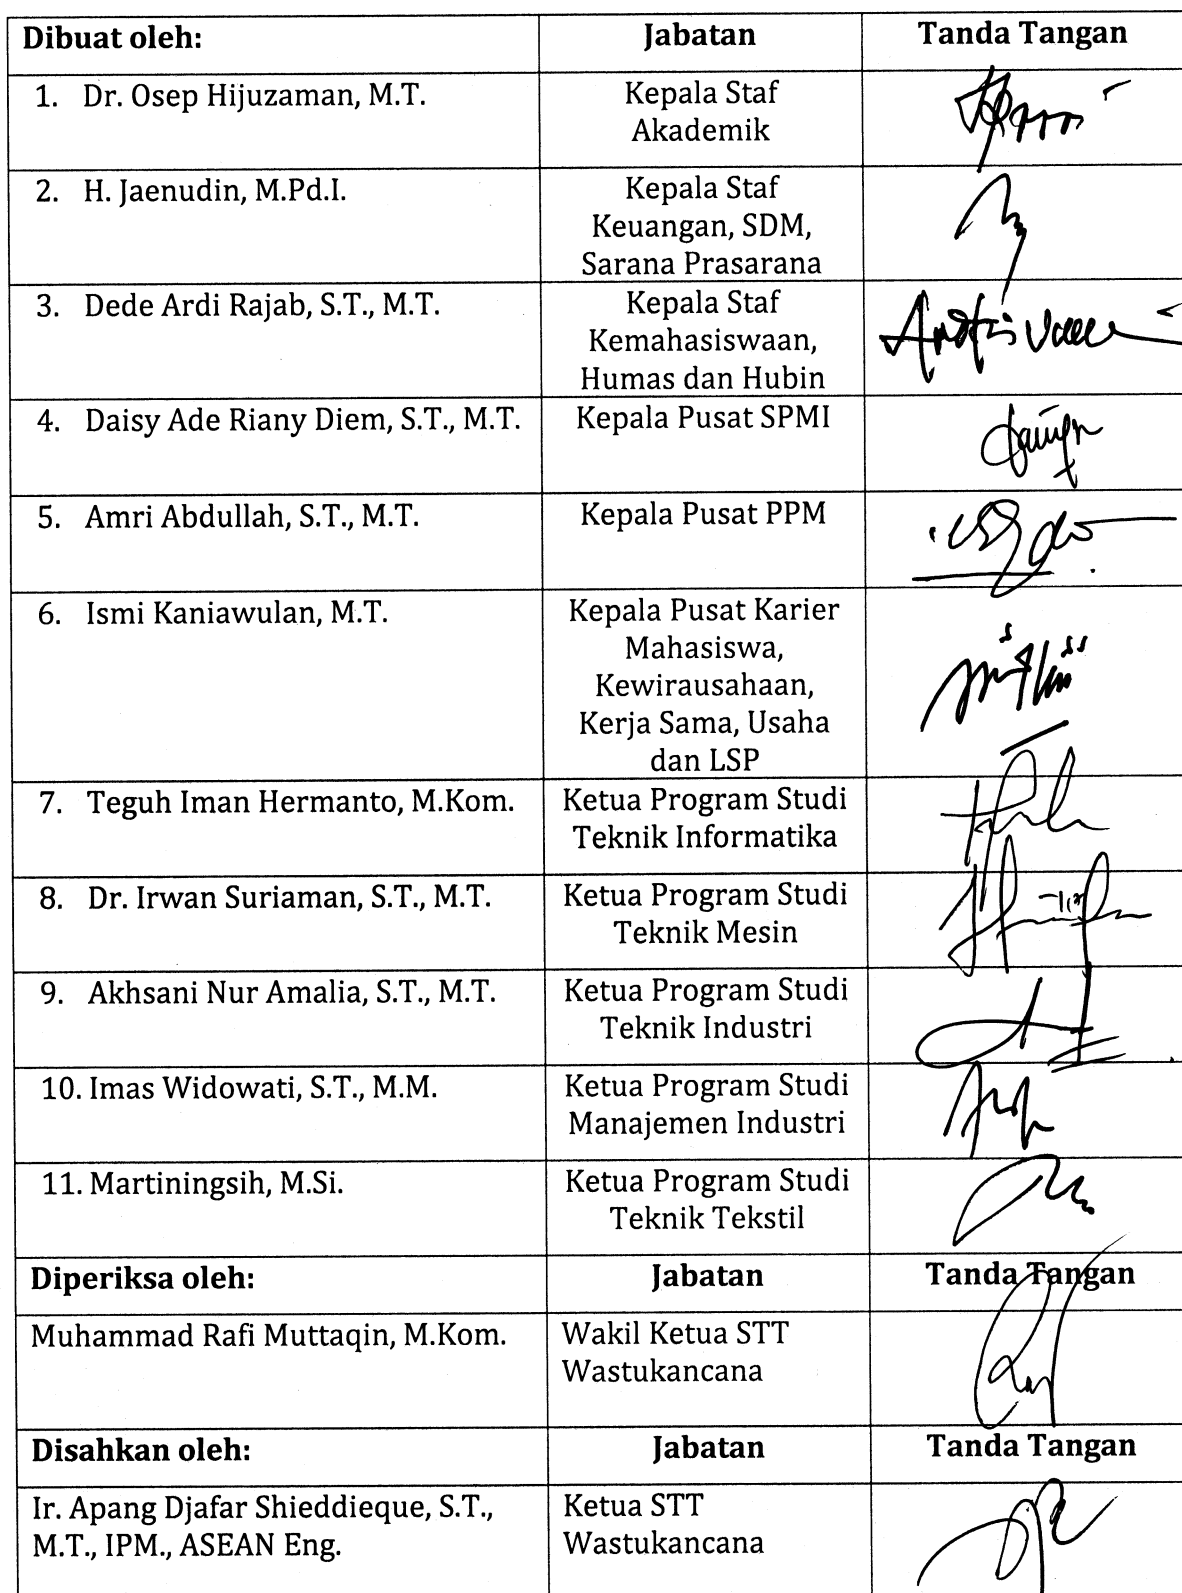 Dibuat oleh: Jabatan Tanda Tangan
1. Dr. Osep Hijuzaman, M.T. Kepala Staf
Akademik
2. H. Jaenudin, M.Pd.I. Kepala Staf
Keuangan, SDM,
Sarana Prasarana
3. Dede Ardi Rajab, S.T., M.T. Kepala Staf
Kemahasiswaan,
Humas dan Hubin
4. Daisy Ade Riany Diem, S.T., M.T. Kepala Pusat SPMI
5. Amri Abdullah, S.T., M.T. Kepala Pusat PPM
6. Ismi Kaniawulan, M.T. Kepala Pusat Karier
Mahasiswa,
Kewirausahaan,
Kerja Sama, Usaha
dan LSP
7. Teguh Iman Hermanto, M.Kom. Ketua Program Studi
Teknik Informatika
8. Dr. Irwan Suriaman, S.T., M.T. Ketua Program Studi
Teknik Mesin
9. Akhsani Nur Amalia, S.T., M.T. Ketua Program Studi
Teknik Industri
10. Imas Widowati, S.T., M.M. Ketua Program Studi
Manajemen Industri
11. Martiningsih, M.Si. Ketua Program Studi
Teknik Tekstil
Diperiksa oleh: Jabatan Tanda Tangan
Muhammad Rafi Muttaqin, M.Kom. Wakil Ketua STT
Wastukancana
Disahkan oleh: Jabatan Tanda Tangan
Ir. Apang Djafar Shieddieque, S.T., Ketua STT
M.T., IPM., ASEAN Eng. Wastukancana